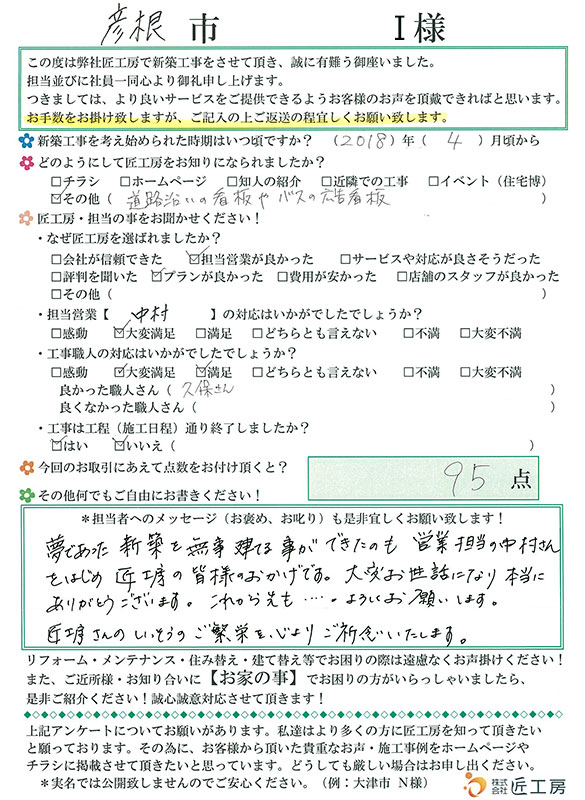 彦根 市 I 様
この度は弊社匠工房で新築工事をさせて頂き、誠に有難う御座いました。
担当並びに社員一同心より御礼申し上げます。
つきましては、より良いサービスをご提供できるようお客様のお声を頂戴できればと思います。
お手数をお掛け致しますが、ご記入の上ご返送の程宜しくお願い致します。
新築工事を考え始められた時期はいつ頃ですか？ （2018）年（ 4 ）月頃から
どのようにして匠工房をお知りになられましたか？
□チラシ □ホームページ □知人の紹介 □近隣での工事 □イベント（住宅博）
☑その他（ 道路沿いの看板や バスの広告看板 ）
匠工房・担当の事をお聞かせください！
・なぜ匠工房を選ばれましたか？
□会社が信頼できた ☑担当営業が良かった □サービスや対応が良さそうだった
□評判を聞いた ☑プランが良かった □費用が安かった □店舗のスタッフが良かった
□その他（ ）
・担当営業【 中村 】の対応はいかがでしたでしょうか？
□感動 ☑大変満足 □満足 □どちらとも言えない □不満 □大変不満
・工事職人の対応はいかがでしたでしょうか？
□感動 ☑大変満足 ☑満足 □どちらとも言えない □不満 □大変不満
良かった職人さん（ 久保さん ）
良くなかった職人さん（ ）
・工事は工程（施工日程）通り終了しましたか？
☑はい ☑いいえ（ ）
今回のお取引にあえて点数をお付け頂くと？ 95 点
その他何でもご自由にお書きください！
＊担当者へのメッセージ（お褒め、お叱り）も是非宜しくお願い致します！
夢であった 新築を無事 建てる事ができたのも 営業担当の中村さん
をはじめ 匠工房の皆様のおかげです。大変お世話になり本当に
ありがとうございます。これから先も・・・・・よろしくお願いします。
匠工房さんのいっそうのご繁栄を心よりご祈念いたします。
リフォーム・メンテナンス・住み替え・建て替え等でお困りの際は遠慮なくお声掛けください！
また、ご近所様・お知り合いに【お家の事】でお困りの方がいらっしゃいましたら、
是非ご紹介ください！誠心誠意対応させて頂きます！
上記アンケートについてお願いがあります。私達はより多くの方に匠工房を知って頂きたい
と願っております。その為に、お客様から頂いた貴重なお声・施工事例をホームページや
チラシに掲載させて頂きたいと思っています。どうしても厳しい場合はお申し出ください。
＊実名では公開致しませんのでご安心ください。（例：大津市 N様） 株式会社 匠工房